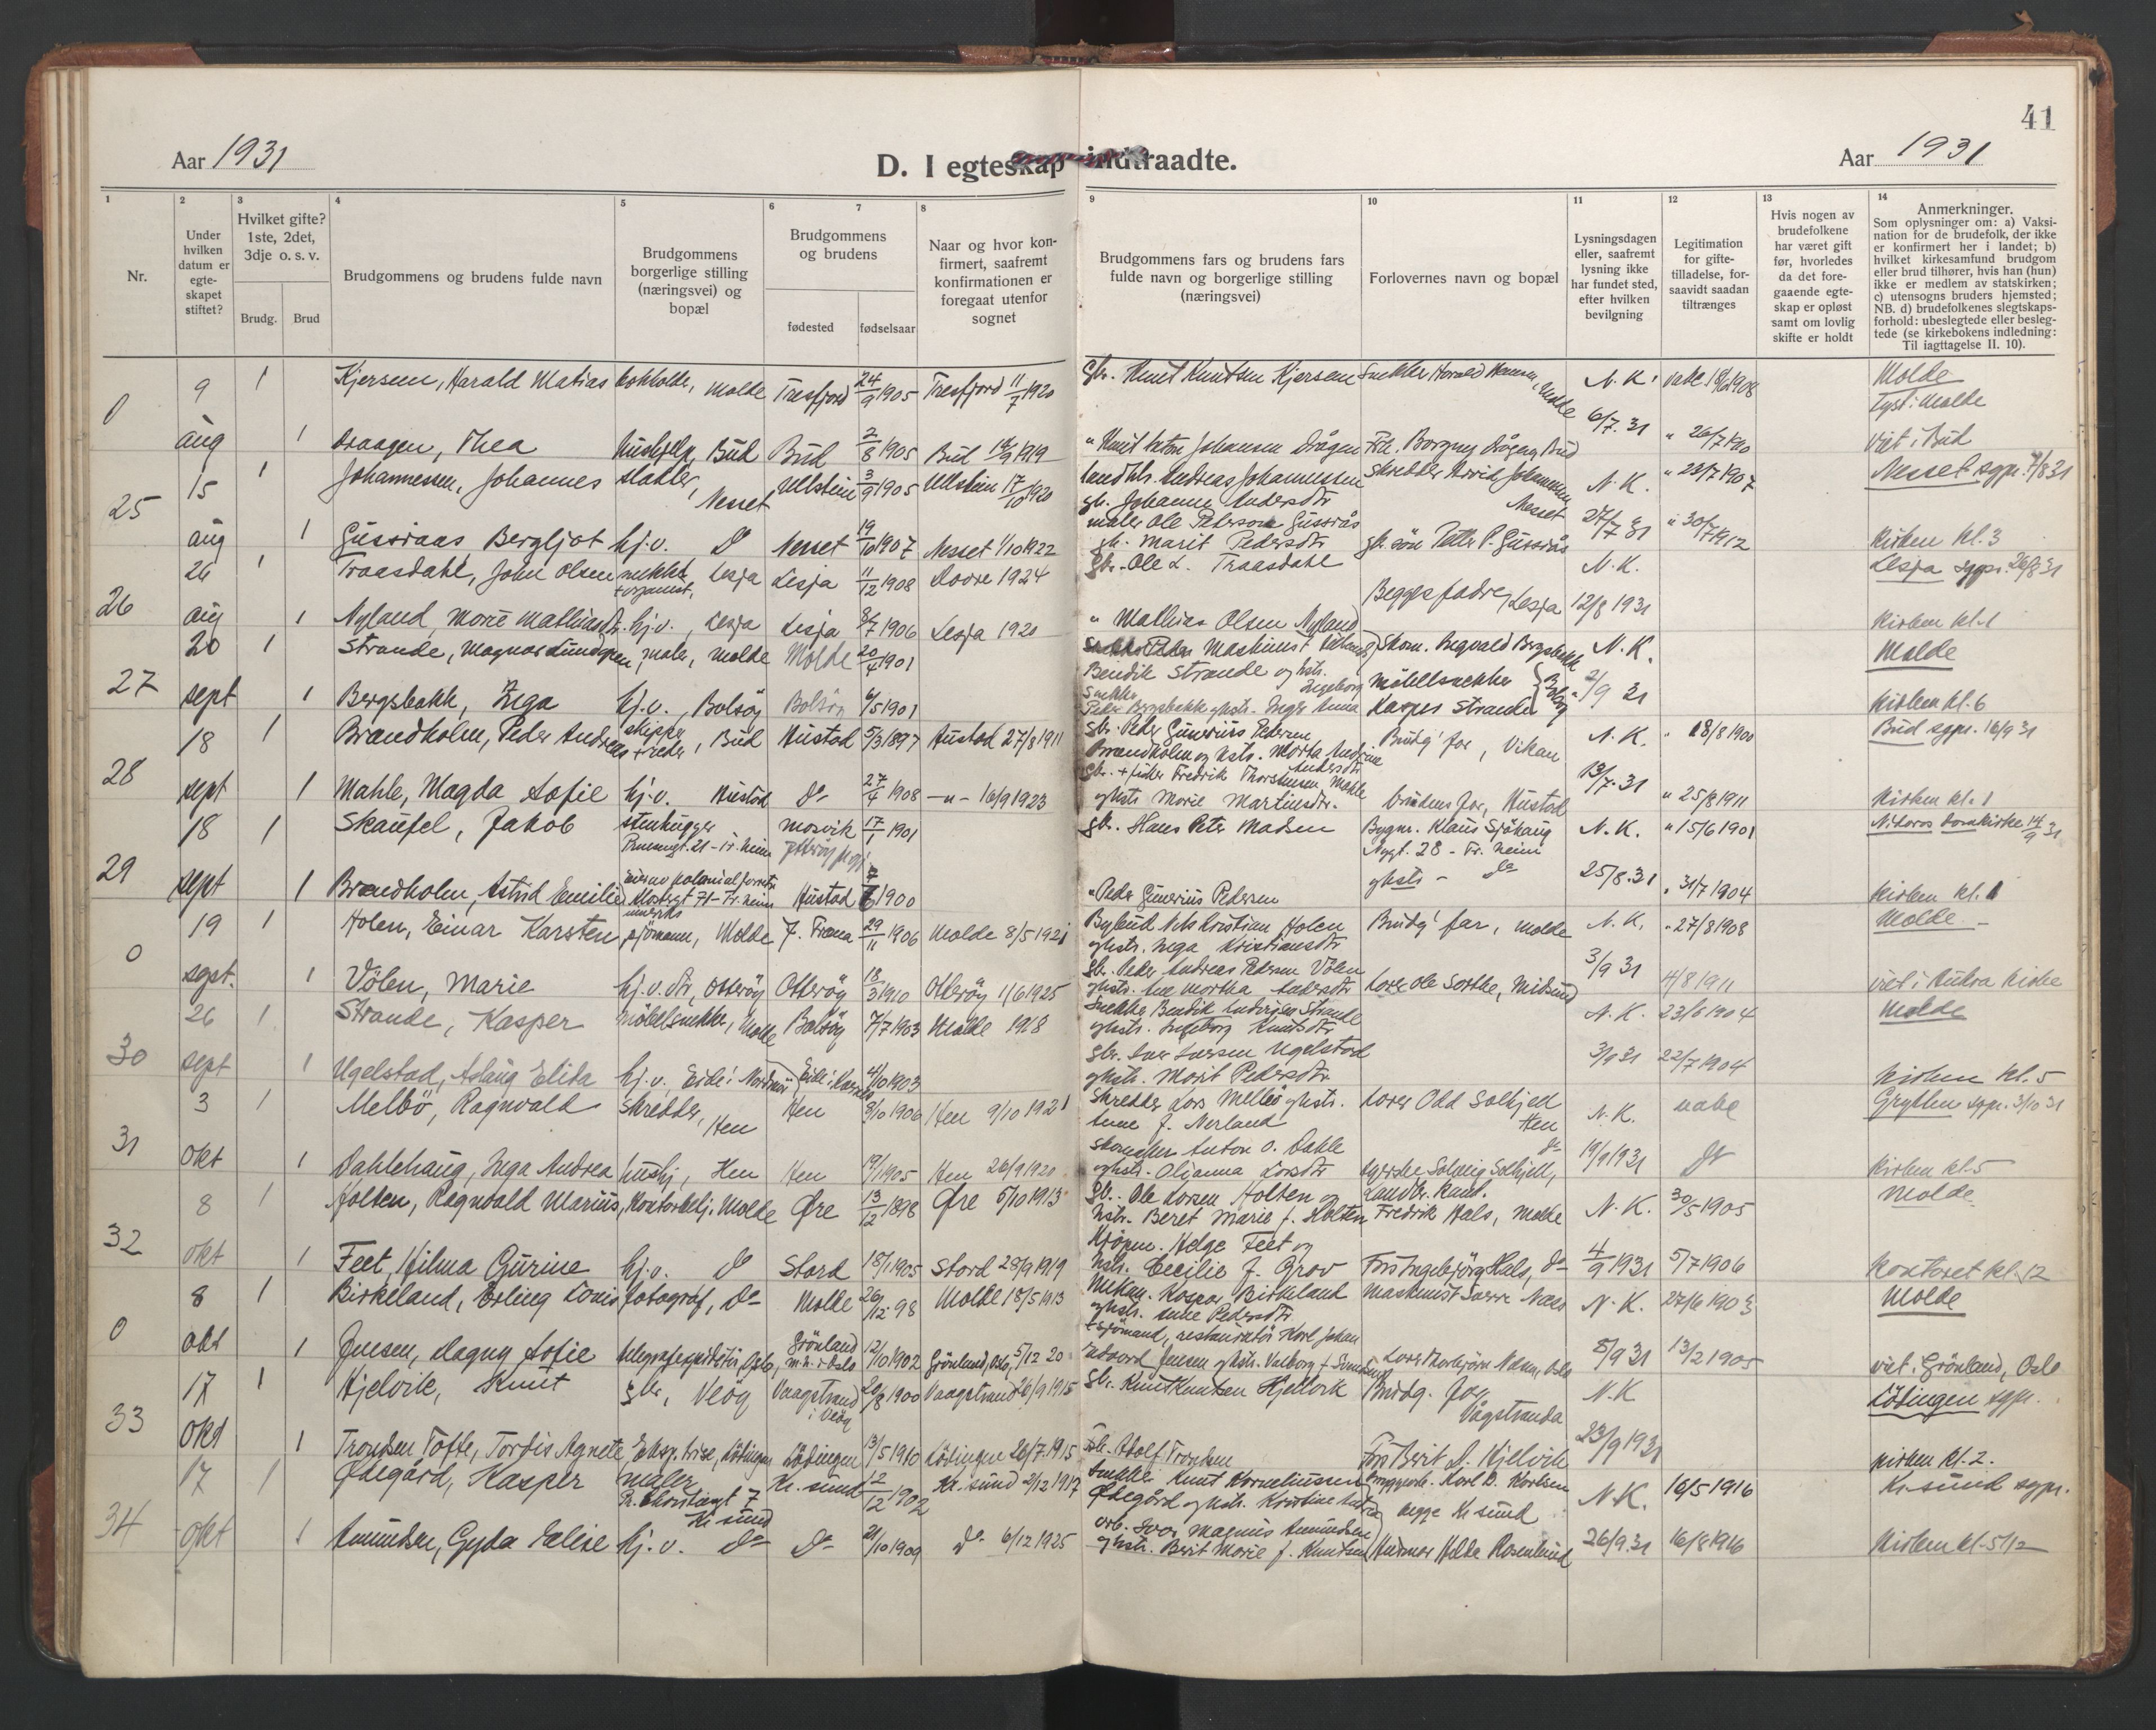 41
Aar 1931
D. I egteskap indtraadte.
Aar 1931
1
2
3
4
5
6
7
8
9
10
11
12
13
14
Nr.
Under hvilken datum er egte-skapet stiftet?
Hvilket gifte? 1ste, 2det, 3dje o. s. v.
Brudg.
Brud
Brudgommens og brudens fulde navn
Brudgommens borgerlige stilling (næringsvei) og bopæl
Brudgommens og brudens
fødested
fødselsaar
Naar og hvor kon-firmert, saafremt konfirmationen er foregaat utenfor sognet
Brudgommens fars og brudens fars fulde navn og borgerlige stilling (næringsvei)
Forlovernes navn og bopæl
Lysningsdagen eller, saafremt lysning ikke har fundet sted, efter hvilken bevilgning
Legitimation for gifte-tilladelse, for-saavidt saadan tiltrænges
Hvis nogen av brudefolkene har været gift før, hvorledes da det fore-gaaende egte-skap er opløst samt om lovlig skifte er holdt
Anmerkninger.
Som oplysninger om: a) Vaksi-nation for de brudefolk, der ikke er konfirmert her i landet; b) hvilket kirkesamfund brudgom eller brud tilhører, hvis han (hun) ikke er medlem av statskirken; c) utensogns bruders hjemsted; NB. d) brudefolkenes slegtskaps-forhold: ubeslegtede eller besleg-tede (se kirkebokens indledning: Til iagttagelse II. 10).
0 9 1 Kjersem, Harald Matias bokholder, Molde Tresfjord 24/9 1905 Tresfjord 11/7 1920 Gbr. Knut Knutsen Kjersem Snekker Harald Hansen, Molde N.K. 6/7.31 Molde
Lyst i Molde
aug 1 Draagen, Thea Hushjelp, Bud Bud 2/8 1905 Bud 1919 " Knut Johansen Drågen Frk. Borgny Drågen, Bud " 26/7 viet i Bud
25 15 1 Johannessen, Johannes Nesset Ullstein 3/9 1905 Ullstein 17/10 1920 Landhl. Andreas Johannessen N.K. " 23/7 1907 Nesset sgpr.
aug 1 Gussiaas, Bergljot hj.v. Do Nesset 19/10 1907 Nesset 1/10 1922 maler Ole Peterson Gussiås gh. Marit Pedersdtr gbr. søn Petter P. Gussiås 27/7 31 " 30/7 1912 Kirken kl. 3
26 26 1 Traasdahl, John Olsen snekker + organist, Lesja Lesja 11/12 1908 Dovre 1924 Gbr. Ole L. Traasdahl Begges fadre, Lesja N.K. 12/8 1931 Lesja sgpr. 26/8 31
aug 1 Nyland, Marie Mathiasdtr. hj.v., Lesja Lesja 1906 Lesja 1920 " Mathias Olsen Nyland Kirken kl. 1
27 20 1 Strande, Magnus maler, Molde Molde 20/4 1901 Maskinist Bendik Strande og hstr. Ingeborg Skom. Ingvald Bergsbakk N.K. Molde
sept 1 Bergsbakk, Inga hj.v., Bolsöy Bolsöy 6/5 1901 Snekker Peder Bergsbakk og hstr. Inger Anna Möbelsnekker Kasper Strande 2/9 31 Kirken kl. 6
28 18 1 Brandholm, Peder Andreas skipper + reder, Bud Hustad 5/3 1897 Hustad 27/8 1911 Gbr. Peder Gunerius Pedersen Brandholm og hstr. Marta Andrine Andersdtr Brudg' far, Vikan N.K. " 18/8 1900 Bud sgpr. 16/9 31
sept 1 Mahle, Magda Sofie hj.v. Hustad Do 27/4 1908 -"- 16/9 1923 Gbr. + fisker Fredrik Thorsteinsen Mahle og hstr Marie Martinsdtr. brudens far, Hustad 13/7.31 " 25/8 1911 Kirken kl. 1
29 18 1 Skaufel, Jakob stenhugger Tr. heim 17/1 1901 gbr. Hans Peter Madsen Bygm. Klaus Sjöhaug Nygt. 28 - Tr. heim N.K. " 15/6 1901 Nidaros Domkirke 14/9 31
sept 1 Brandholm, Astrid Emilie Klostergt 71 - Tr. heim Hustad 1900 " Peder Gunerius Pedersen og hstr - Do 25/8.31 " 31/7 1904 Kirken kl. 1
0 19 1 Holen, Einar Karsten sjömann, Molde Fræna 29/11 1906 Molde 8/5 1921 Bybud Nils Kristian Holen og hstr. Inga Kristiansdtr Brudg' far, Molde N.K. " 27/8 1908 Molde
sept. 1 Völen, Marie hj.v. dtr, Otteröy Otteröy 18/3 1910 Otteröy 1/6 1925 Gbr. Peder Andreas Pedersen Völen og hstr. Martha Andersdtr Ole Sorthe, Midsund 3/9 31 4/8 1911 viet i Aukra Kirke
30 26 1 Strande, Kasper Möbelsnekker, Molde Bolsöy 7/7 1903 Molde 1918 Snekker Bendik Strande og hstr. Ingeborg Knutsdtr N.K. 23/6 1904 Molde
sept 1 Ugelstad, Aslaug Elida hj.v. Eide i Nordmör Eide 4/10 1903 gbr. Iver Iversen Ugelstad og hstr. Marit Pedersdtr 3/9 31 22/7 1904 Kirken kl. 5
31 3 1 Melbö, Ragnvald Skredder, Hen Hen 8/10 1906 Hen 9/10 1921 Skredder Lars Melbö og hstr. Anne f. Nerland Odd Solhjell Hen N.K. vabe Grytten sgpr. 3/10 31
okt 1 Dahlehaug, Inga Andrea hushj, Hen Hen 1905 Hen 26/9 1920 Skomaker Anton O. Dahle og hstr. Olianna Larsdtr Solveig Solhjell, Do 19/9 1931 Do Kirken kl. 5
32 8 1 Holten, Ragnvald Marius, Kontorbetj. Molde Øre 13/12 1898 Øre 5/10 1913 Gbr. Ole Larsen Holten og hstr. Beret Marie f. Holten Landbr. kand. Fredrik Hals, Molde N.K. 30/5 1905 Molde
okt 1 Feet, Hilma Gurine hj.v. Do Stord 18/1 1905 Stord 28/9 1919 Kjöpm. Helge Feet og hstr. Cecilie f. Grov Fru Ingebjörg Hals, Do 4/9 1931 5/7 1906 Kontoret kl. 12
0 8 1 Birkeland, Erling Louis fotograf, Do Molde 26/12 98 Molde 18/5 1913 Mekan. Kaspar Birkeland og hstr. Anne Pedersdtr Maskinist Sverre Næss N.K. 27/6 1903 Molde
okt 1 Jensen, Dagny Sofie telegrafexpeditör, Oslo, Grönland 12/10 1902 Grönland, Oslo, 5/12 20 sjömand, restauratör Karl Johan Edvard Jensen og hstr. Valborg 5/9 31 13/2 1905 viet i Grönland, Oslo
33 17 1 Hjelvik, Knut gbr, Veöy Vaagstrand i Veöy 20/8 1900 Vaagstrand 26/9 1915 Gbr. Knut Knutsen Hjelvik Brudg. far Vågstranda N.K Lödingen sgpr.
okt 1 Trondsen Tofte, Tordis Agnete Eksp. trise, Lödingen Lödingen 13/5 1910 Lödingen 26/7 1915 Adolf Trondsen Frk Berit L. Hjelvik 23/9 1931 kirken kl. 2.
34 17 1 Ødegård, Kasper maler Kr. sund Kr. sund 12/12 1902 Kr. sund 2/12 1917 Snekker Knut Korneliussen Ødegård og hstr. Kristine Bryggearb. Karl B. Karlsen begge Kr sund N.K. 16/5 1916 Kr sund sgpr.
okt 1 Amundsen, Gyda Elise hj.v. Do Do 21/10 1909 Do 6/12 1925 arb. Ivar Magnus Amundsen og hstr. Berit Marie f. Knutsen Hilda Rosenlund 26/9.31 16/8 1916 Kirken kl. 5 1/2